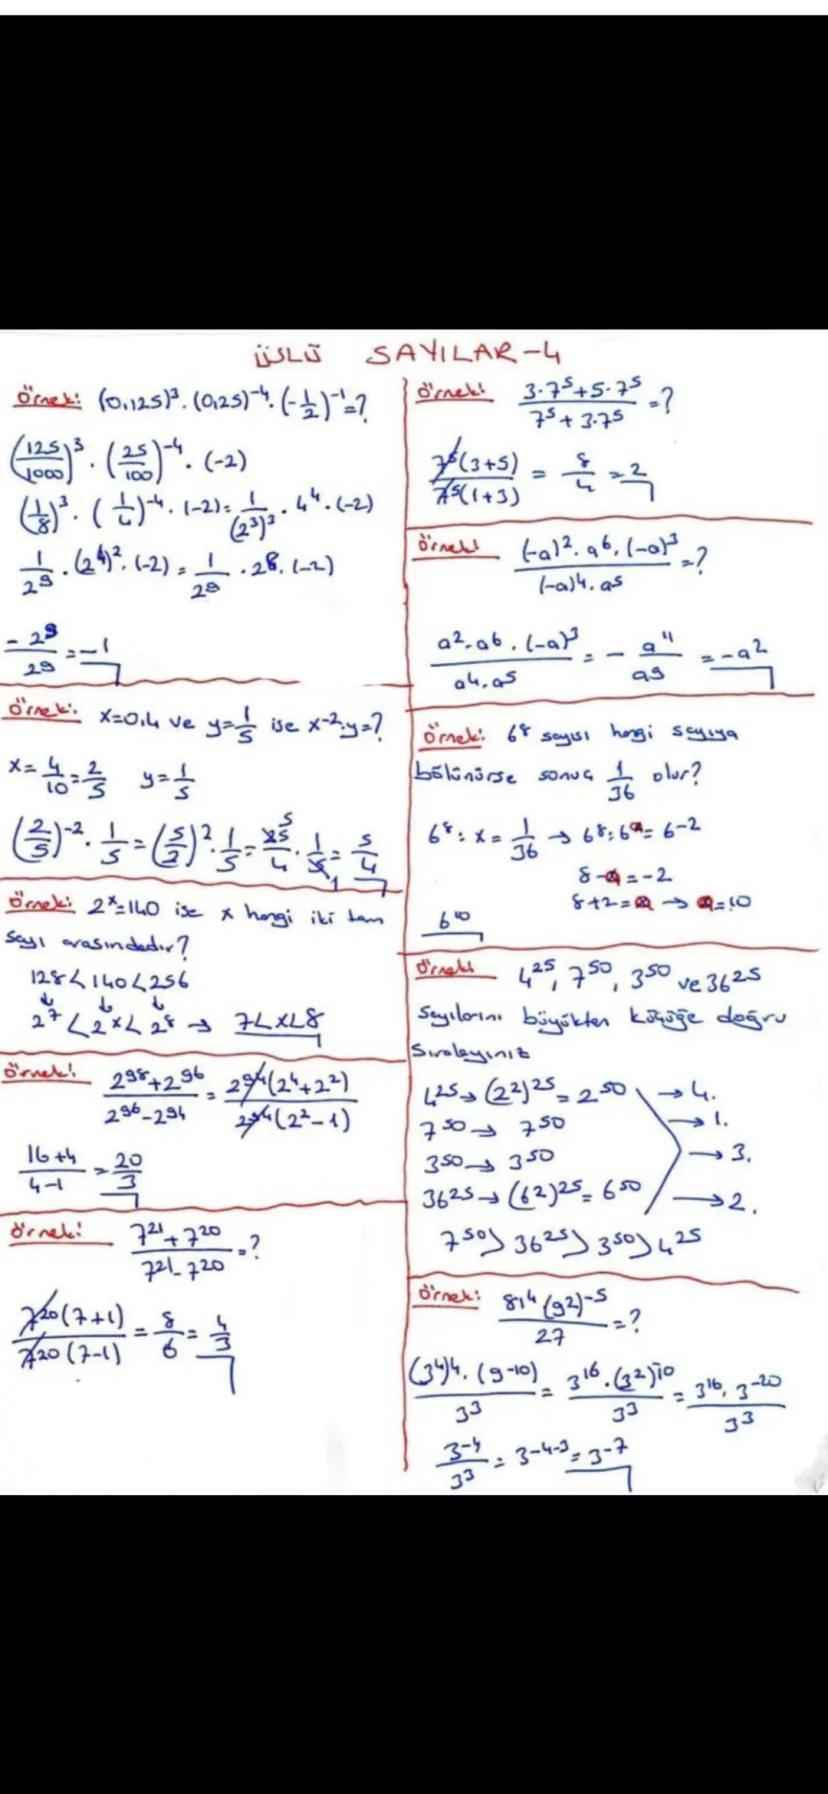 ÜSLÜ SAYILAR-4
Örnek: (0,125)³·(0,25)⁻⁴·(-1/2)⁻¹=?
(125/1000)³·(25/100)⁻⁴·(-2)
(1/8)³·(1/4)⁻⁴·(-2)=1/(2³)³·4⁴·(-2)
1/2⁹·(2⁴)²·(-2)=1/2⁹·2⁸·(-2)
-2⁹/2⁹=-1
Örnek: x=0,4 ve y=1/5 ise x⁻²·y=?
x=4/10=2/5 y=1/5
(2/5)⁻²·1/5=(5/2)²·1/5=25/4·1/5=5/4
Örnek: 2ˣ=140 ise x hangi iki tam
sayı arasındadır?
128<140<256
2⁷<2ˣ<2⁸→ 7<x<8
Örnek: (2⁹⁸+2⁹⁶)/(2⁹⁶-2⁹⁴)=2⁹⁴(2⁴+2²)/2⁹⁴(2²-1)
(16+4)/(4-1)=20/3
Örnek: (7²¹+7²⁰)/(7²¹-7²⁰)=?
7²⁰(7+1)/7²⁰(7-1)=8/6=4/3
Örnek: (3·7⁵+5·7⁵)/(7⁵+3·7⁵)=?
7⁵(3+5)/7⁵(1+3)=8/4=2
Örnek: (-a)²·a⁶·(-a)³/(-a)⁴·a⁵=?
a²·a⁶·(-a)³/a⁴·a⁵=-a¹¹/a⁹=-a²
Örnek: 6⁸ sayısı hangi sayıya
bölünürse sonuç 1/36 olur?
6⁸:x=1/36→6⁸:6ᵃ=6⁻²
8-a=-2
8+2=a→a=10
6¹⁰
Örnek: 4²⁵, 7⁵⁰, 3⁵⁰ ve 36²⁵
Sayılarını büyükten küçüğe doğru
Sıralayınız
4²⁵→(2²)²⁵=2⁵⁰ →4.
7⁵⁰→ 7⁵⁰ →1.
3⁵⁰→ 3⁵⁰ →3.
36²⁵→(6²)²⁵=6⁵⁰ →2.
7⁵⁰>36²⁵>3⁵⁰>4²⁵
Örnek: 81⁴(9²)⁻⁵/27=?
(3⁴)⁴·(9⁻¹⁰)/3³=3¹⁶·(3²)⁻¹⁰/3³=3¹⁶·3⁻²⁰/3³
3⁻⁴/3³=3⁻⁴⁻³=3⁻⁷